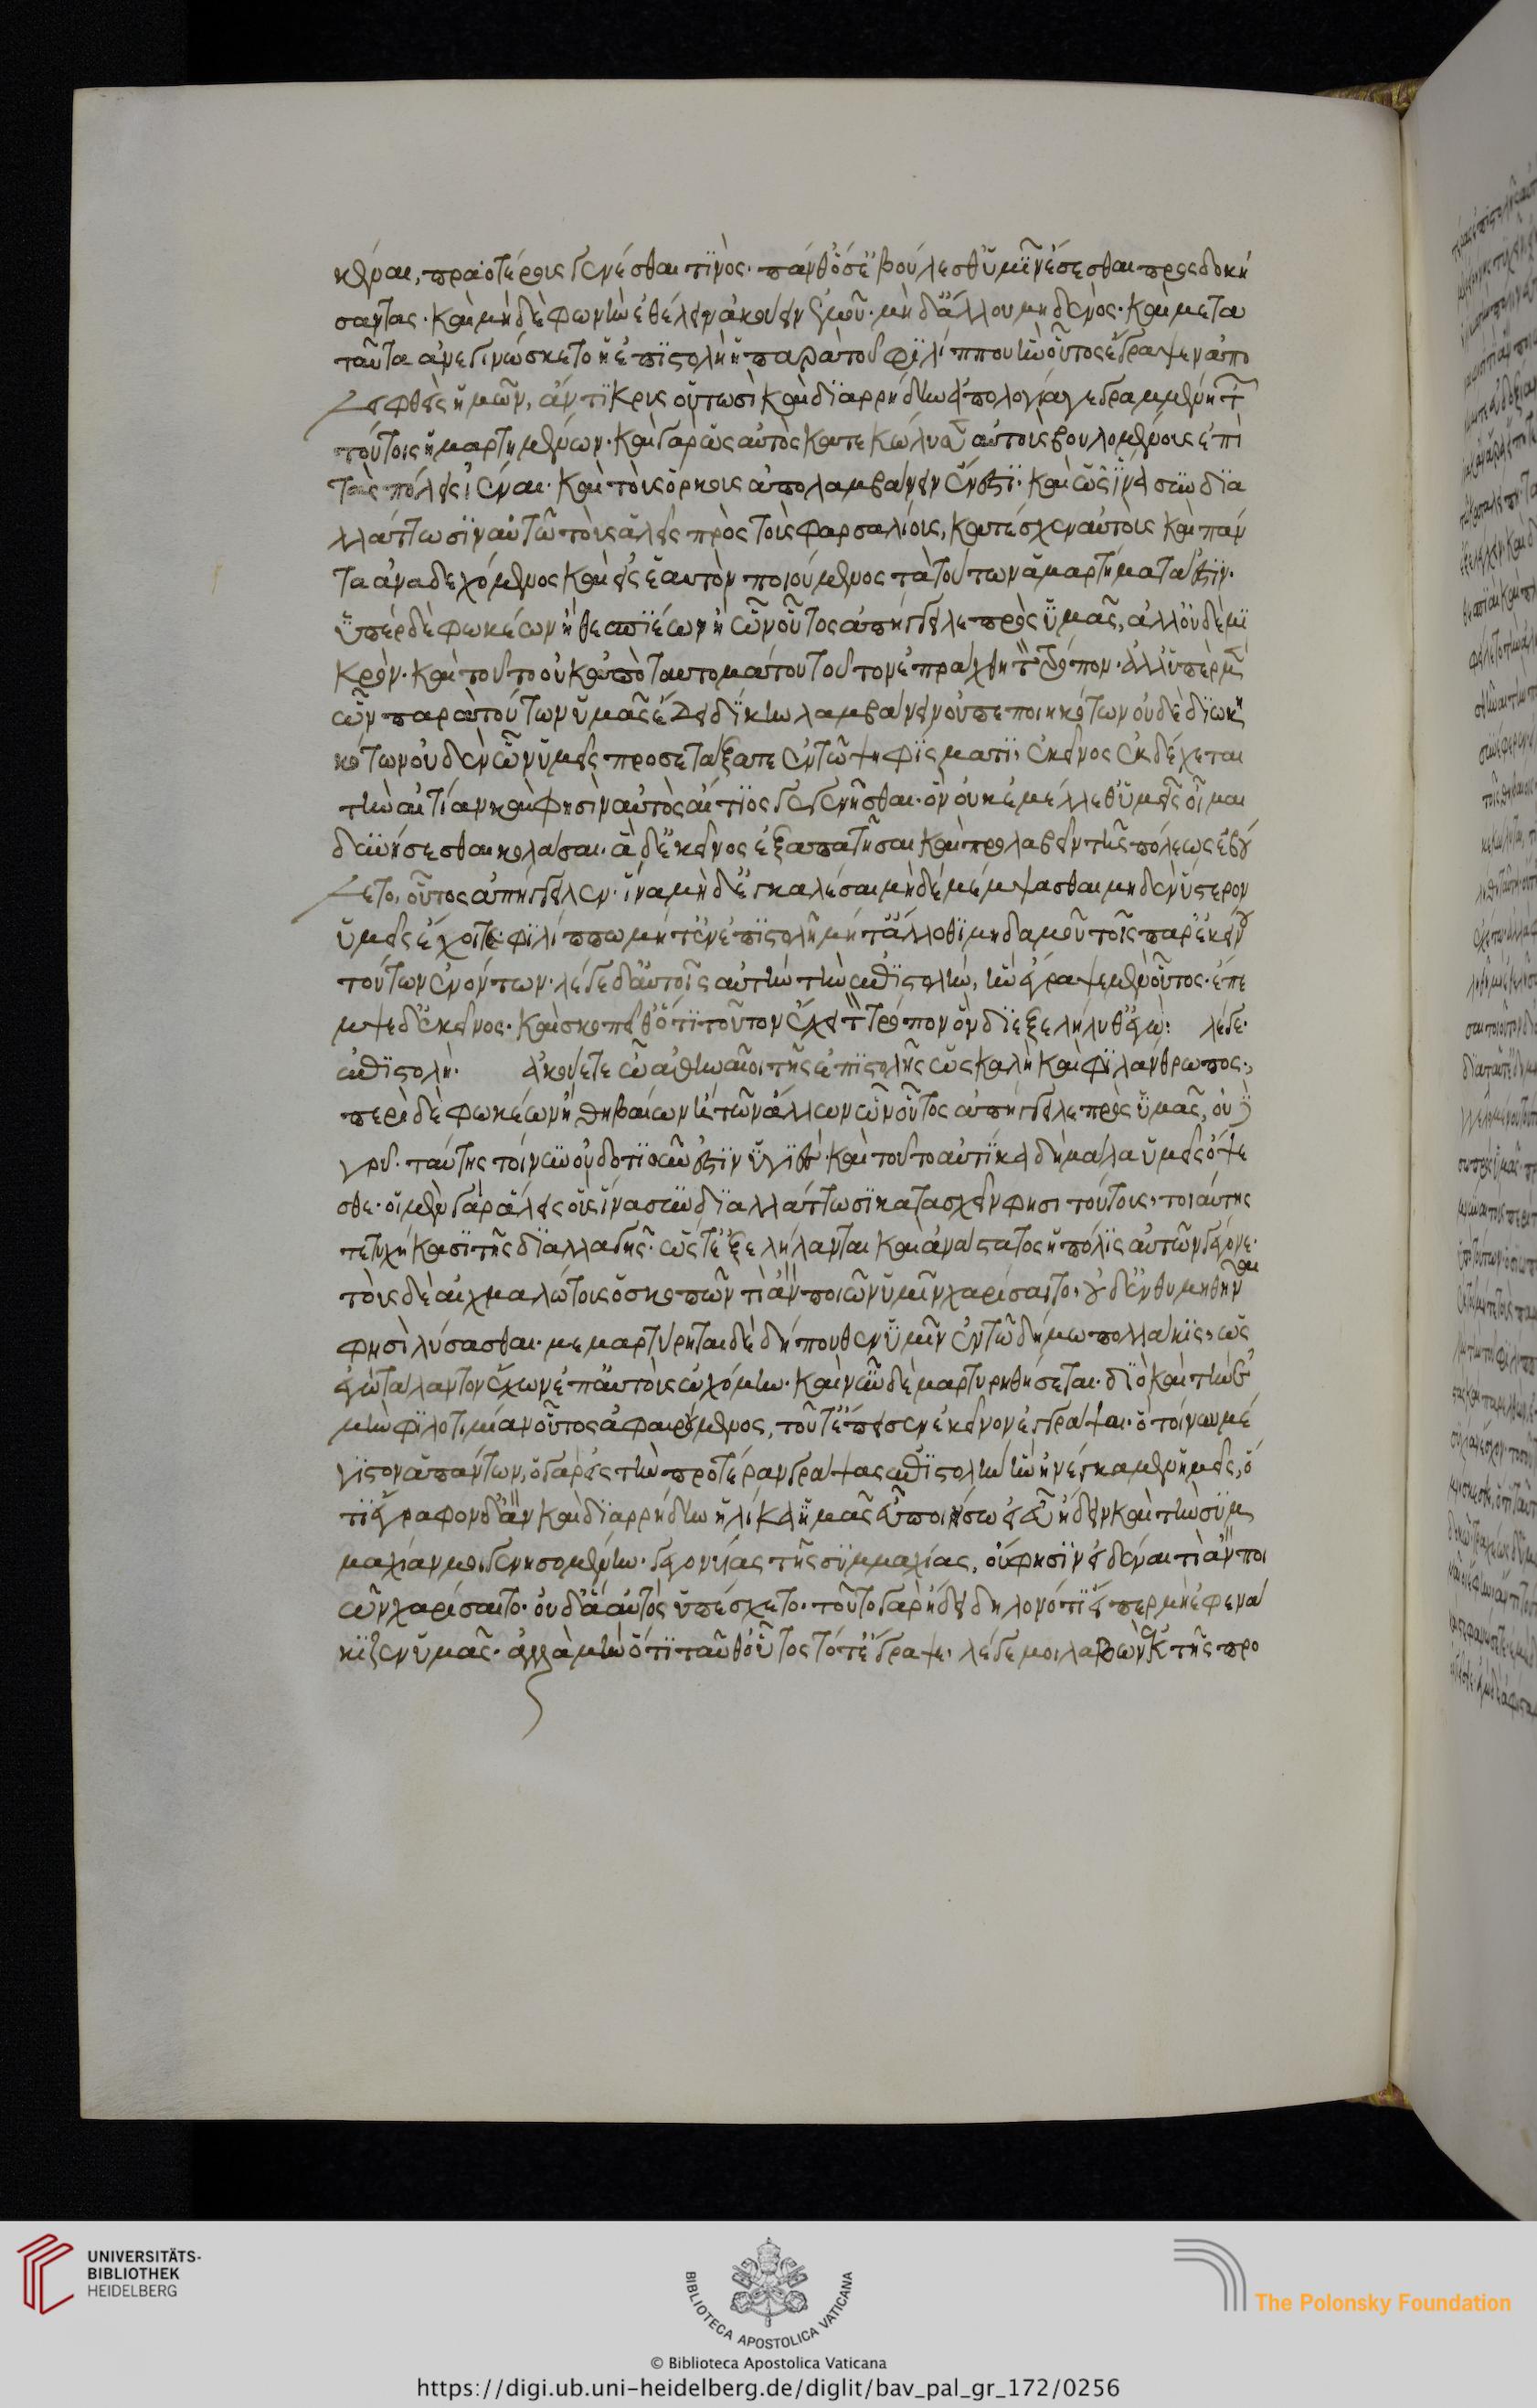 κέναι, πραοτέροις γενέσθαι τινὸς· πάνθ' ὅσ' ἐβούλεσθ' ὑμῖν ἔσεσθαι προσδοκή
σαντας· καὶ μηδὲ φωνὴν ἐθέλειν ἀκούειν ἐμοῦ· μὴ δ' ἄλλου μηδενός· καὶ μετὰ
ταῦτα ἀνεγινώσκετο ἡ ἐπιστολὴ ἡ παρὰ τοῦ φιλίππου ἣν οὗτος ἔγραψεν ἀπο
λειφθεὶς ἡμῶν, ἄντικρις οὑτωσὶ καὶ διαρρήδην ἀπολογία γεγραμμένη τῶν
τούτοις ἡμαρτημένων· καὶ γὰρ ὡς αὐτὸς κατεκώλυσεν αὐτοὺς βουλομένους ἐπὶ
τὰς πόλεις ἰέναι· καὶ τοὺς ὅρκους ἀπολαμβάνειν ἔνεστι· καὶ ὡς ἵνα συνδια
λλάττωσιν αὐτῷ τοὺς ἁλεῖς πρὸς τοὺς φαρσαλίοις, κατέσχεν αὐτοὺς καὶ πάν
τα ἀναδεχόμενος καὶ εἰς ἑαυτὸν ποιούμενος τὰ τούτων ἁμαρτήματα ἐστίν·
ὑπὲρ δὲ φωκέων ἢ θεσπιέων ἢ ὧν οὗτος ἀπήγγειλε πρὸς ὑμᾶς, ἀλλ' οὐδὲ μι
κρόν· καὶ τοῦτο οὐκ ἀπὸ ταυτομάτου τοῦτον ἐπράχθη τὸν τρόπον· ἀλλ' ὑπὲρ μὲν
ὧν παρὰ τούτων ὑμᾶς ἔδει δίκην λαμβάνειν οὐ πεποιηκότων οὐδὲ διῳκη
κότων οὐδὲν ὧν ὑμεῖς προσετάξατε ἐν τῷ ψηφίσματι, ἐκεῖνος ἐκδέχεται
τὴν αἰτίαν καὶ φησὶν αὐτὸς αἴτιος γεγενῆσθαι· ὃν οὐκ ἐμέλλεθ' ὑμεῖς οἶμαι
δυνήσεσθαι κολάσαι· ἃ δ' ἐκεῖνος ἐξαπατῆσαι καὶ προλαβεῖν τῆς πόλεως ἐβού
λετο, οὗτος ἀπήγγειλεν· ἵνα μὴ δ' ἐγκαλέσαι μηδὲ μέμψασθαι μηδὲν ὕστερον
ὑμεῖς ἔχοιτε φιλίππῳ μήτ' ἐν ἐπιστολῇ μήτ' ἄλλοθι μηδαμοῦ τοῖς παρ' ἐκείνου
τούτων ἐνόντων· λέγε δ' αὐτοῖς αὐτὴν τὴν ἐπιστολὴν, ἣν ἔγραψε μὲν οὗτος· ἔπε
μψε δ' ἐκεῖνος· καὶ σκοπεῖθ' ὅτι τοῦτον ἔχει τὸν τρόπον ὃν διεξελήλυθ' ἐγώ: λέγε·
ἐπιστολή· ἀκούετε ὦ ἄνδρες ἀθηναῖοι τῆς ἐπιστολῆς ὡς καλὴ καὶ φιλάνθρωπος·
περὶ δὲ φωκέων ἢ θηβαίων ἢ τῶν ἄλλων ὧν οὗτος ἀπήγγειλε πρὸς ὑμᾶς, οὐδὲ
γρῦ· ταύτης τοίνυν οὐδ' ὁτιοῦν ἐστὶν ὑγιές· καὶ τοῦτο αὐτίκα δὴ μάλα ὑμεῖς ὄψε
σθε· οἱ μὲν γὰρ ἁλεῖς οὓς ἵνα συνδιαλλάττωσι κατασχεῖν φησι τούτους, τοιαύτης
τετυχήκασι τῆς διαλλαγῆς· ὥστ' ἐξελήλανται καὶ ἀνάστατος ἡ πόλις αὐτῶν γέγονε·
τοὺς δὲ αἰχμαλώτους ὁ σκοπῶν τί ἂν ποιῶν ὑμῖν χαρίσαιτο, οὐδ' ἐνθυμηθῆναι
φησὶ λύσασθαι· μεμαρτύρηται δὲ δήπουθεν ὑμῖν ἐν τῷ δήμῳ πολλάκις, ὡς
ἐγὼ τάλαντον ἔχων ἐπ' αὐτοὺς ᾠχόμην· καὶ νῦν δὲ μαρτυρηθήσεται· διὸ καὶ τὴν ἐ
μὴν φιλοτιμίαν οὗτος ἀφαιρούμενος, τοῦτ' ἔπεισεν ἐκεῖνον ἐγγράψαι· ὃ τοίνυν μέ
γιστον ἁπάντων, ὁ γὰρ εἰς τὴν προτέραν γράψας ἐπιστολὴν ἣν ἠνέγκαμεν ἡμεῖς, ὅ
τι ἔγραφον δ' ἂν καὶ διαρρήδην ἡλίκα ὑμᾶς εὖ ποιήσω εἰ εὖ ᾔδειν καὶ τὴν συμ
μαχίαν μοι γενησομένην· γεγονυίας τῆς συμμαχίας, οὔ φησιν εἰδέναι τί ἂν ποι
ῶν χαρίσαιτο· οὐδ' ὃ αὐτὸς ὑπέσχετο· τοῦτο γὰρ ᾔδει δηλονότι εἴπερ μὴ ἐφενά
κιζεν ὑμᾶς· ἀλλὰ μὴν ὅτι ταῦθ' οὗτος τότ' ἔγραψε, λέγε μοι λαβὼν ἐκ τῆς προ
UNIVERSITÄTS-
BIBLIOTHEK
HEIDELBERG
BIBLIOTECA APOSTOLICA VATICANA
The Polonsky Foundation
© Biblioteca Apostolica Vaticana
https://digi.ub.uni-heidelberg.de/diglit/bav_pal_gr_172/0256